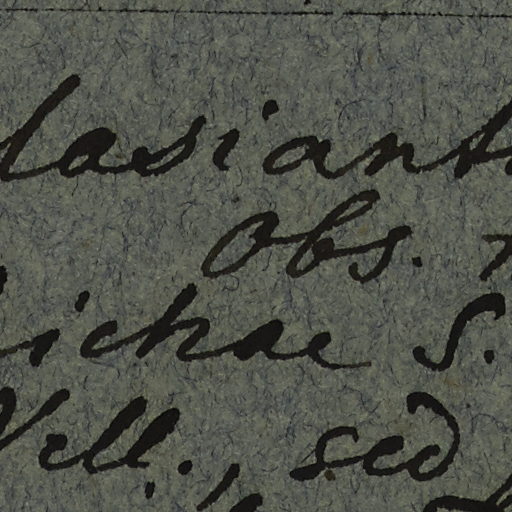 lasianth
Obs.
ichae S.
Vell., sed